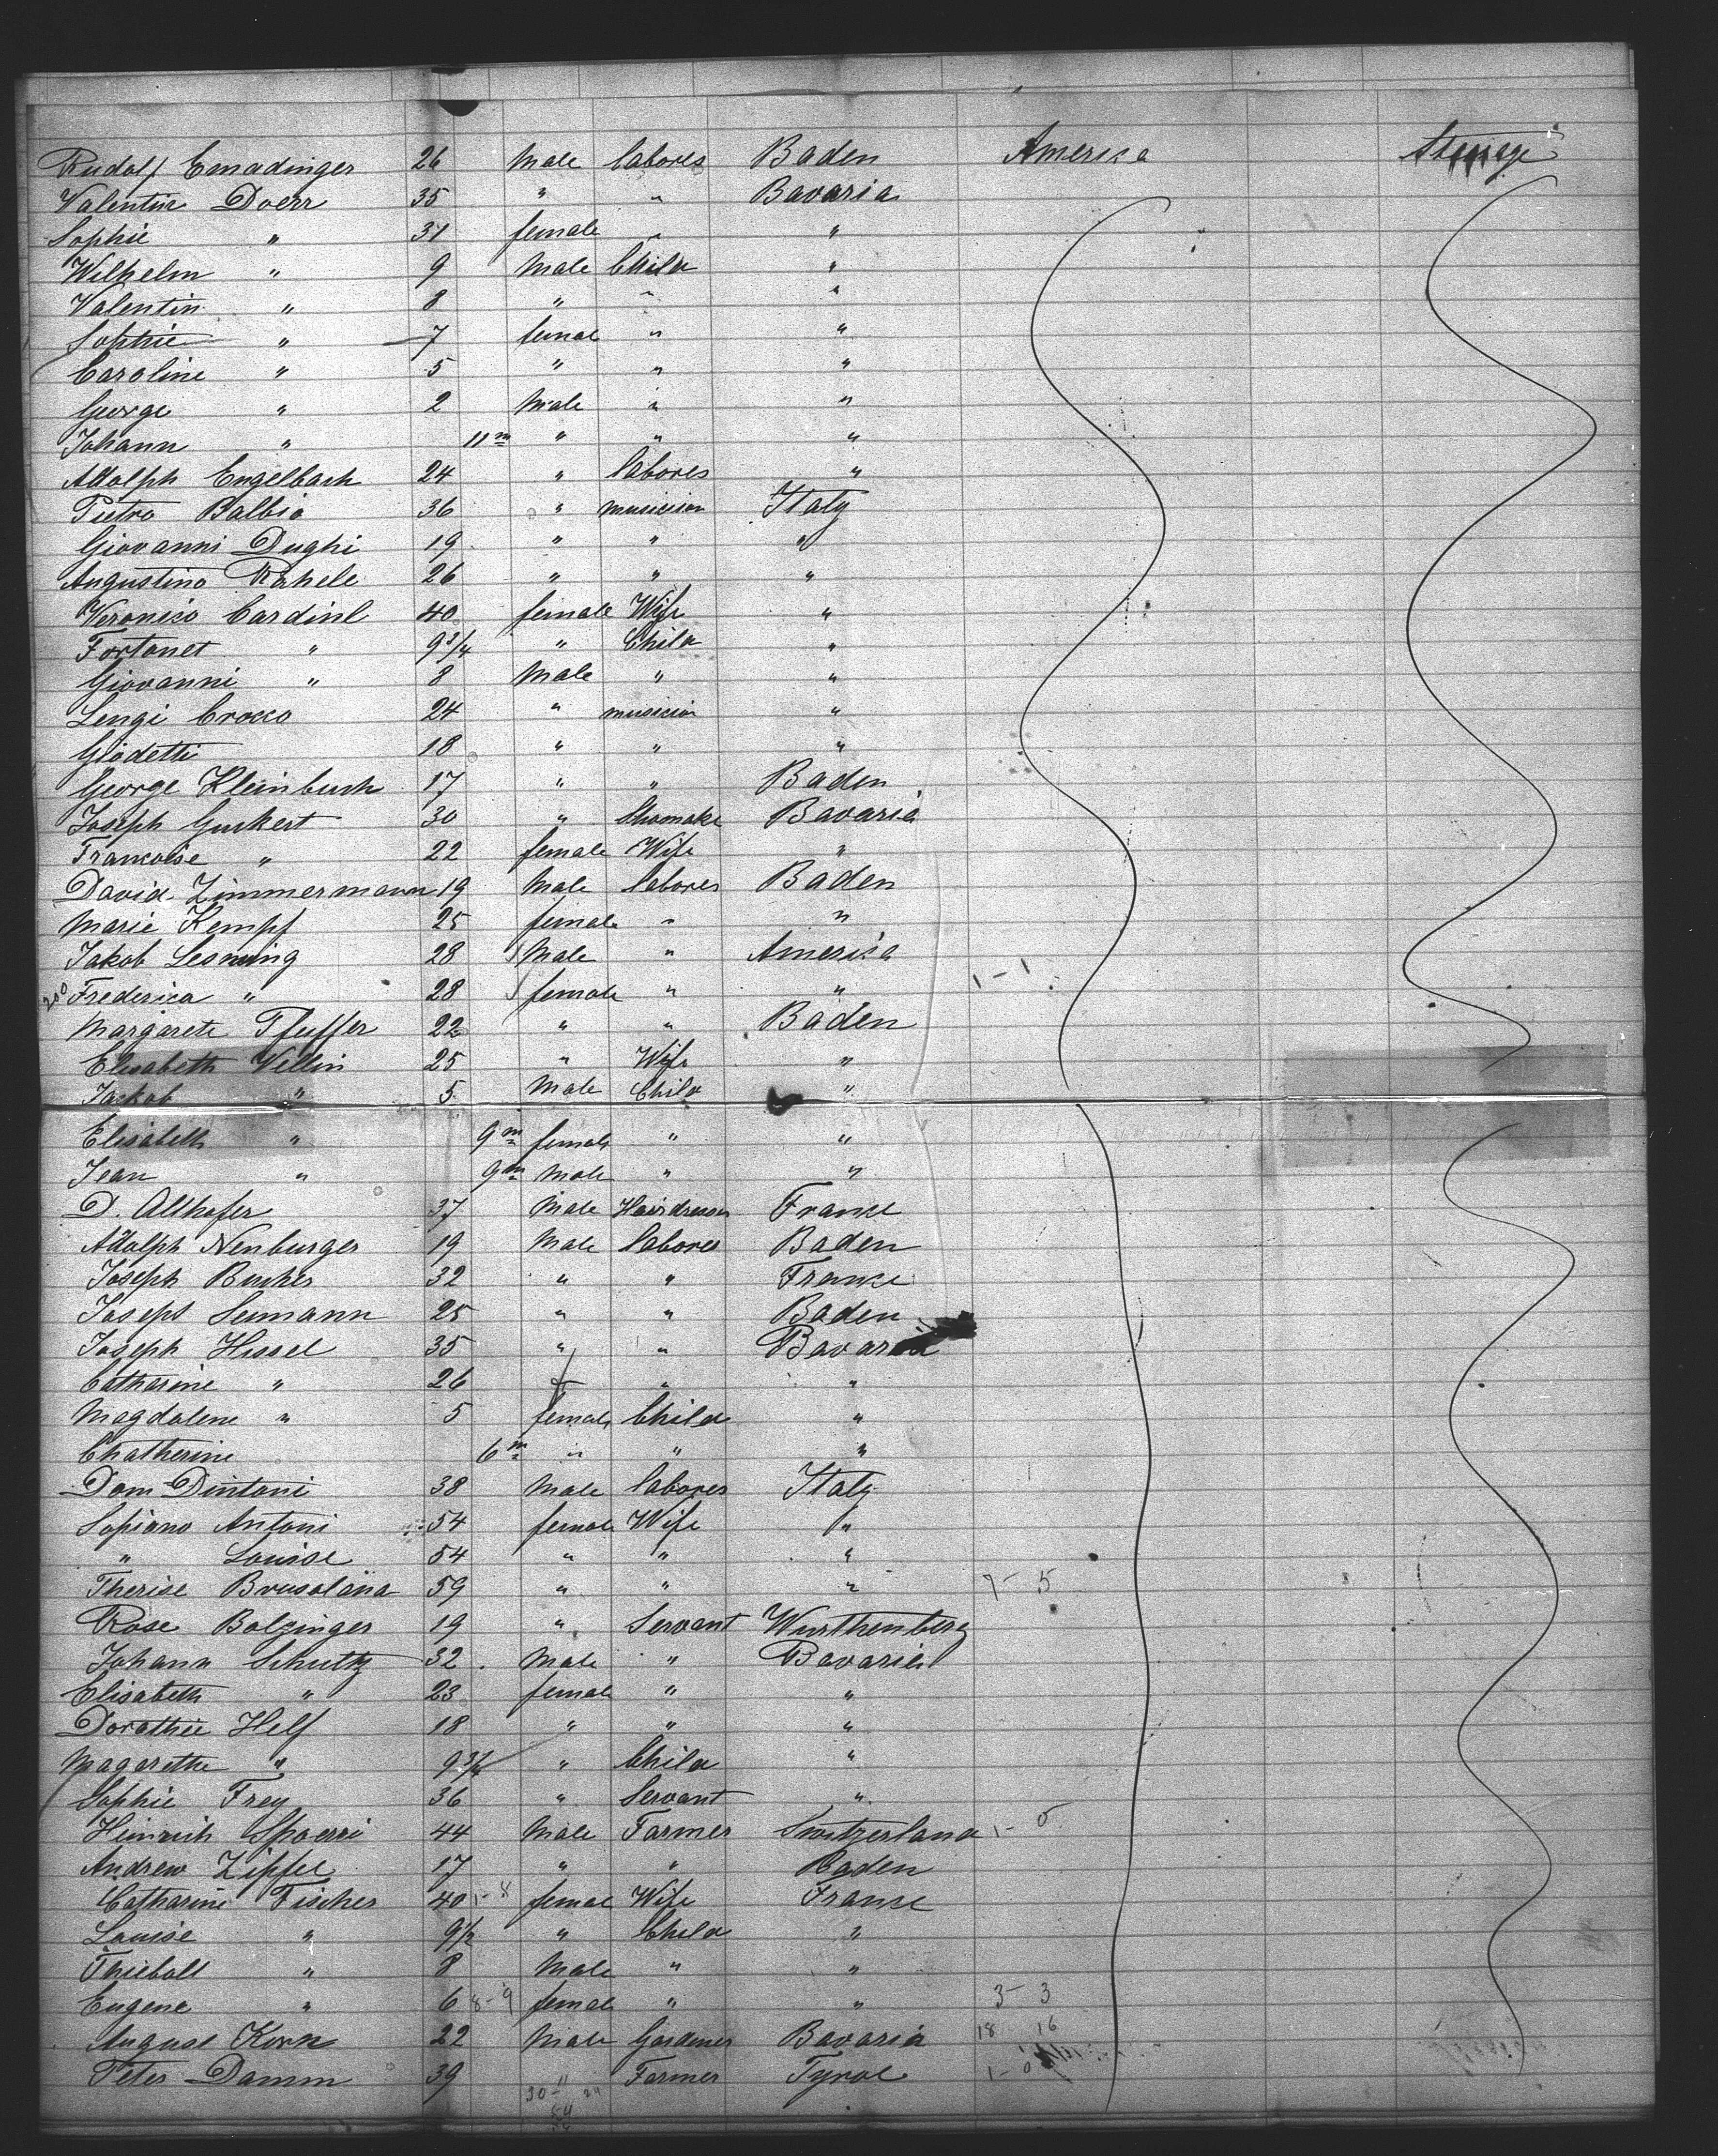 Rudolf Emadinger 26 Male labores Baden America Steerage
Valentin Doerr 35 " " Bavaria
Sophie " 31 female " "
Wilhelm " 9 Male Child "
Valentin " 8 " " "
Sophie " 7 female " "
Caroline " 5 " " "
George " 2 Male " "
Johann " 11m " " "
Adolph Engelbach 24 " labores "
Pietro Balbio 36 " musician Italy
Giovanni Dughi 19 " " "
Augustino Rahele 26 " " "
Veronico Cardinl 40 female Wife "
Fortanet " 9 3/4 " Child "
Giovanni " 8 Male " "
Lengi Crocco 24 " musician "
Giodetti 18 " " "
George Kleinbush 17 " " Baden
Joseph Guckert 30 " Shomake Bavaria
Francoise " 22 female Wife "
David Zimmermann 19 Male labores Baden
Marie Kempf 25 female " "
Jakob Lesming 28 Male " America
200 Frederica " 28 female " " 1-1
Margarete Pfeffer 22 " " Baden
Elisabeth Vellin 25 " Wife "
Jackob " 5 Male Child "
Elisabeth " 9m female " "
Jean " 9m Male " "
D. Althofer 37 Male Hairdresser France
Adolph Neuburger 19 Male labores Baden
Joseph Bucher 32 " " France
Joseph Seumann 25 " " Baden
Joseph Hissel 35 " " Bavaria
Catharine " 26 f " "
Magdalene " 5 female Child "
Chatherine 6m " " "
Dom Dintoni 38 Male labores Italy
Sopiano Antoni 54 female Wife "
" Louise 54 " " "
Therise Brusolana 59 " " " 7-5
Rose Bolzinger 19 " Servant Wurthenberg
Johann Schultz 32 Male " Bavaria
Elisabeth " 23 female " "
Dorothie Helf 18 " " "
Magarethe " 9 3/4 " Child "
Sophie Frey 36 " Servant "
Heinrich Spoerri 44 Male Farmer Switzerland 1-0
Andrew Zipfel 17 " " Baden
Catharine Fischer 40 1-8 female Wife France
Louise " 9 1/2 " Child "
Thiebolt " 8 Male " "
Eugene " 6 8-9 female " " 3-3
August Korn 22 Male Gardener Bavaria 18 16
Peter Damm 39 " Farmer Tyrol 1-0
30- 24
54